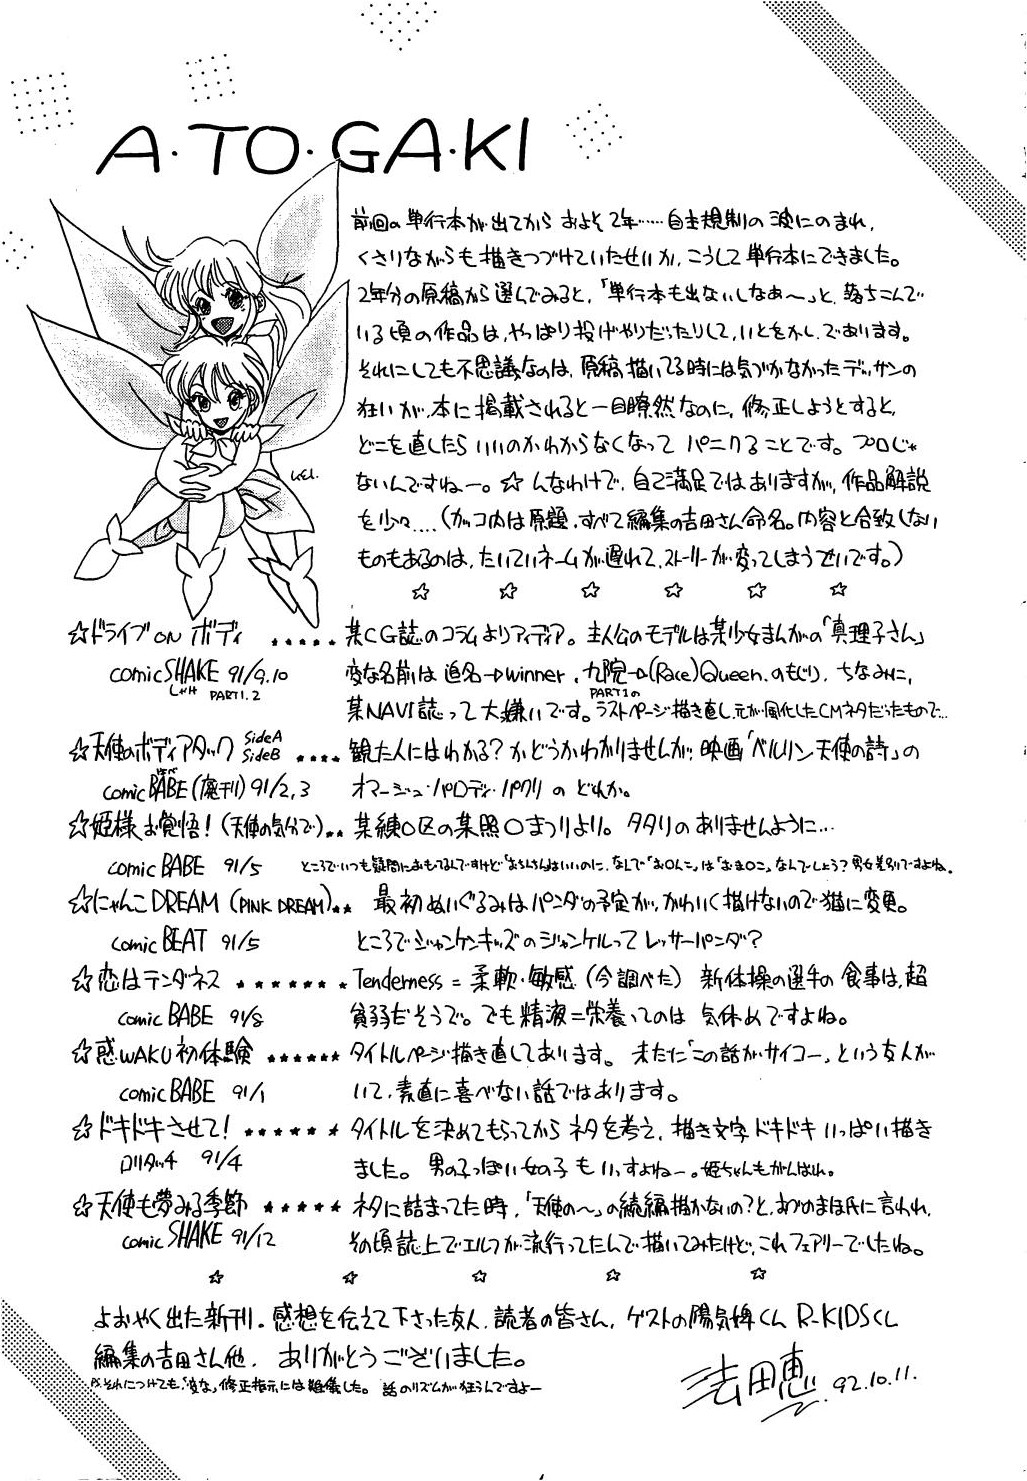 A・TO・GA・KI
前回の単行本が出てから およそ2年……自主規制の波にのまれ、
くさりながらも描きつづけていたせいか、こうして単行本にできました。
2年分の原稿から選んでみると、「単行本も出ないしなあ〜」と、落ちこんで
いる頃の作品は、やっぱり投げやりだったりして、いとをかし、であります。
それにしても不思議なのは、原稿描いてる時には気づかなかったデッサンの
狂いが、本に掲載されると一目瞭然なのに、修正しようとすると、
どこを直したらいいのかわからなくなって パニクることです。プロじゃ
ないんですねー。☆んなわけで、自己満足ではありますが、作品解説
を少々…(カッコ内は原題、すべて編集の吉田さん命名。内容と合致しない
ものもあるのは、たいていネームが遅れて、ストーリーが変ってしまうせいです。)
☆ ☆ ☆ ☆ ☆ ☆
☆ドライブON ボディ ★★★★★ 某CG誌のコラムよりアイディア。主人公のモデルは某少女まんがの「真理子さん」
comic SHAKE 91/9.10 変な名前は 追名→winner、九院→(Race)Queen、のもじり、ちなみに、
しゃけ PART1.2 PART1の
某NAVI誌って大嫌いです。ラストページ描き直し、元が風化したCMネタだったもので…
☆天使のボディアタック SideA SideB ★★★★ 観た人にはわかる?かどうかわかりませんが、映画「ベルリン天使の詩」の
comic BABE(廃刊)91/2,3 オマージュ・パロディ・パクリの どれか。
☆姫様お覚悟!(天使の気分で)★★ 某練○区の某照○まつりより。タタリのありませんように…
comic BABE 91/5
☆にゃんこDREAM (PINK DREAM)★★ 最初ぬいぐるみはパンダの予定が、かわいく描けないので猫に変更。
comic BEAT 91/5 ところでジャンケンキッズのジャンケルってレッサーパンダ?
☆恋はテンダネス ★★★★★★★ Tenderness = 柔軟・敏感(今調べた) 新体操の選手の食事は、超
comic BABE 91/8 貧弱だそうで。でも精液=栄養ってのは 気休めですよね。
☆惑WAKU初体験 ★★★★★★ タイトルページ描き直してあります。未だに「この話がサイコー」という友人が
comic BABE 91/1 いて、素直に喜べない話ではあります。
☆ドキドキさせて! ★★★★★★ タイトルを決めてもらってからネタを考え、描き文字ドキドキ いっぱい描き
ロリタッチ 91/4 ました。男の子っぽい女の子もいいすよねー。姫ちゃんもがんばれ。
☆天使も夢みる季節 ★★★★★ ネタに詰まってた時、「天使の〜」の続編描かないの?と、あづめまほ氏に言われ、
comic SHAKE 91/12 その頃誌上でエルフが流行ってたんで描いてみたけど、これフェアリーでしたね。
☆ ☆ ☆ ☆ ☆
よおやく出た新刊。感想を伝えて下さった友人、読者の皆さん、ゲストの陽気婢くん R-KIDSくん
編集の吉田さん他、ありがとうございました。
それにつけても、「変な」修正指示には難儀した。話のリズムが狂うんですよー
法田恵 92.10.11.